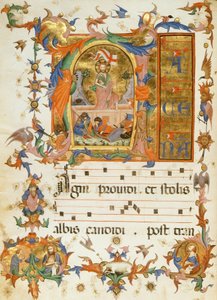 agni prouidi. et stolis
albis candidi. post tran